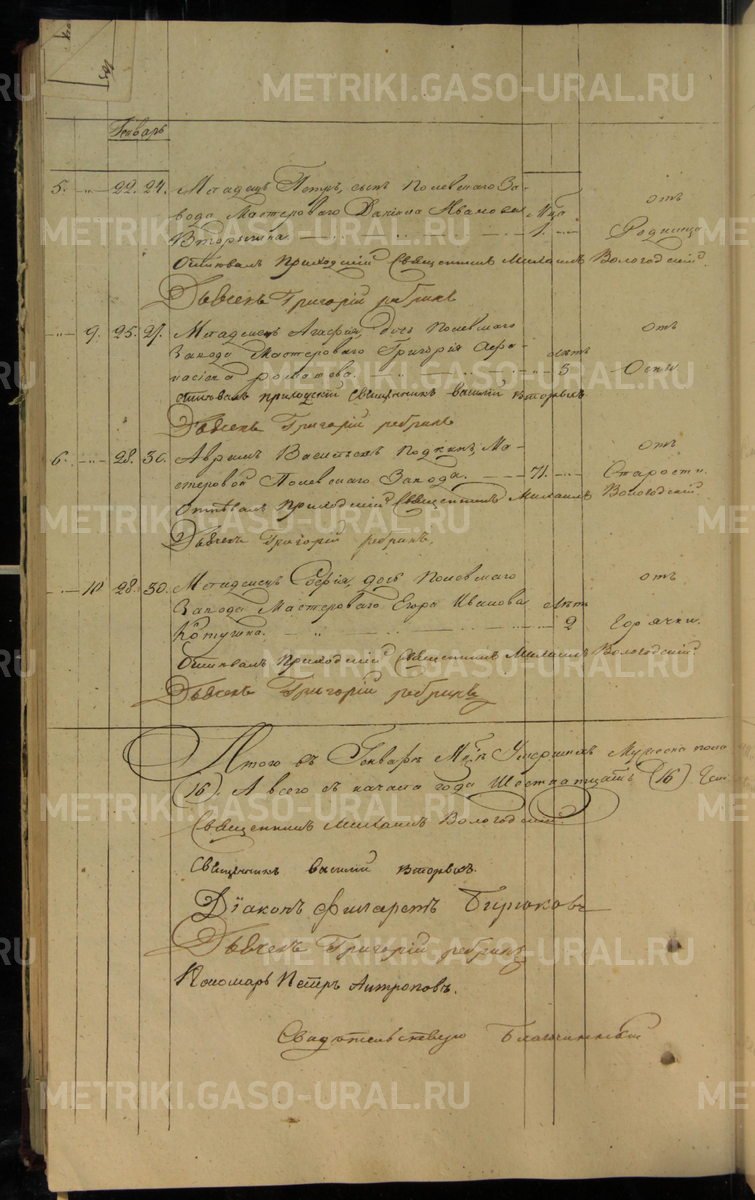 165
Генварь
5. 22. 24. Младенецъ Петръ, сынъ Полевскаго За-
вода Мастероваго Данила Иванова М-ца от
Вторыгина. 1. Родимца
Отпѣвалъ Приходскій Священникъ Михаилъ Вологодскій.
Дьячекъ Григорій Ребринъ
9. 25. 27. Младенецъ Агафія, дочь Полевскаго от
Завода Мастероваго Григорія Афа- лѣтъ
насіева 3 Оспы.
отпѣвалъ приходскій священникъ василій вторыхъ
Дьячекъ Григорій Ребринъ
6. 28. 30. Аврамъ Васильевъ Ма- от
стеровой Полевскаго Завода. 71. Старости.
Отпѣвалъ Приходскій Священникъ Михаилъ Вологодскій.
Дьячекъ Григорій Ребринъ.
10 28. 30. Младенецъ Софія, дочь Полевскаго от
Завода Мастероваго Егора Иванова лѣтъ
Котугина. 2 Горячки.
Отпѣвалъ Приходскій Священникъ Михаилъ Вологодскій.
Дьячекъ Григорій Ребринъ
Итого въ Генварѣ М-цѣ Умершихъ Мужеска пола
(16). А всего съ начала года Шестнатцать (16) Чел
Священникъ Михаилъ Вологодскій.
Священникъ василій вторыхъ.
Діаконъ Филаретъ Бирюковъ
Дьячекъ Григорій Ребринъ
Пономарь Петръ Антроповъ.
Свидѣтельствую Благочинный
METRIKI.GASO-URAL.RU